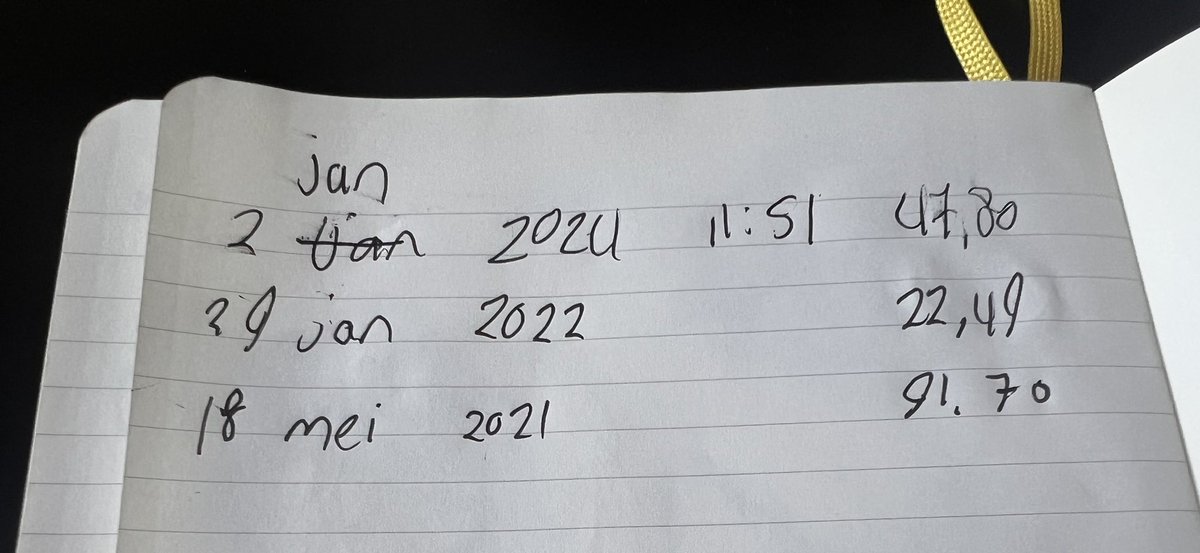 jan
2 jan 2024 11:51 47,80
29 jan 2022 22,49
18 mei 2021 91.70